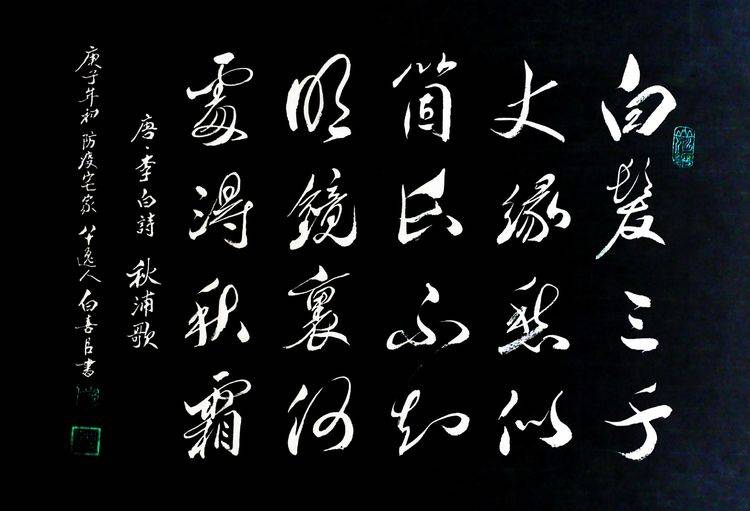 白髮三千
丈緣愁似
箇長不知
明鏡裏何
處得秋霜
唐·李白詩 秋浦歌
庚子年初 防疫宅家 逸人 白喜書